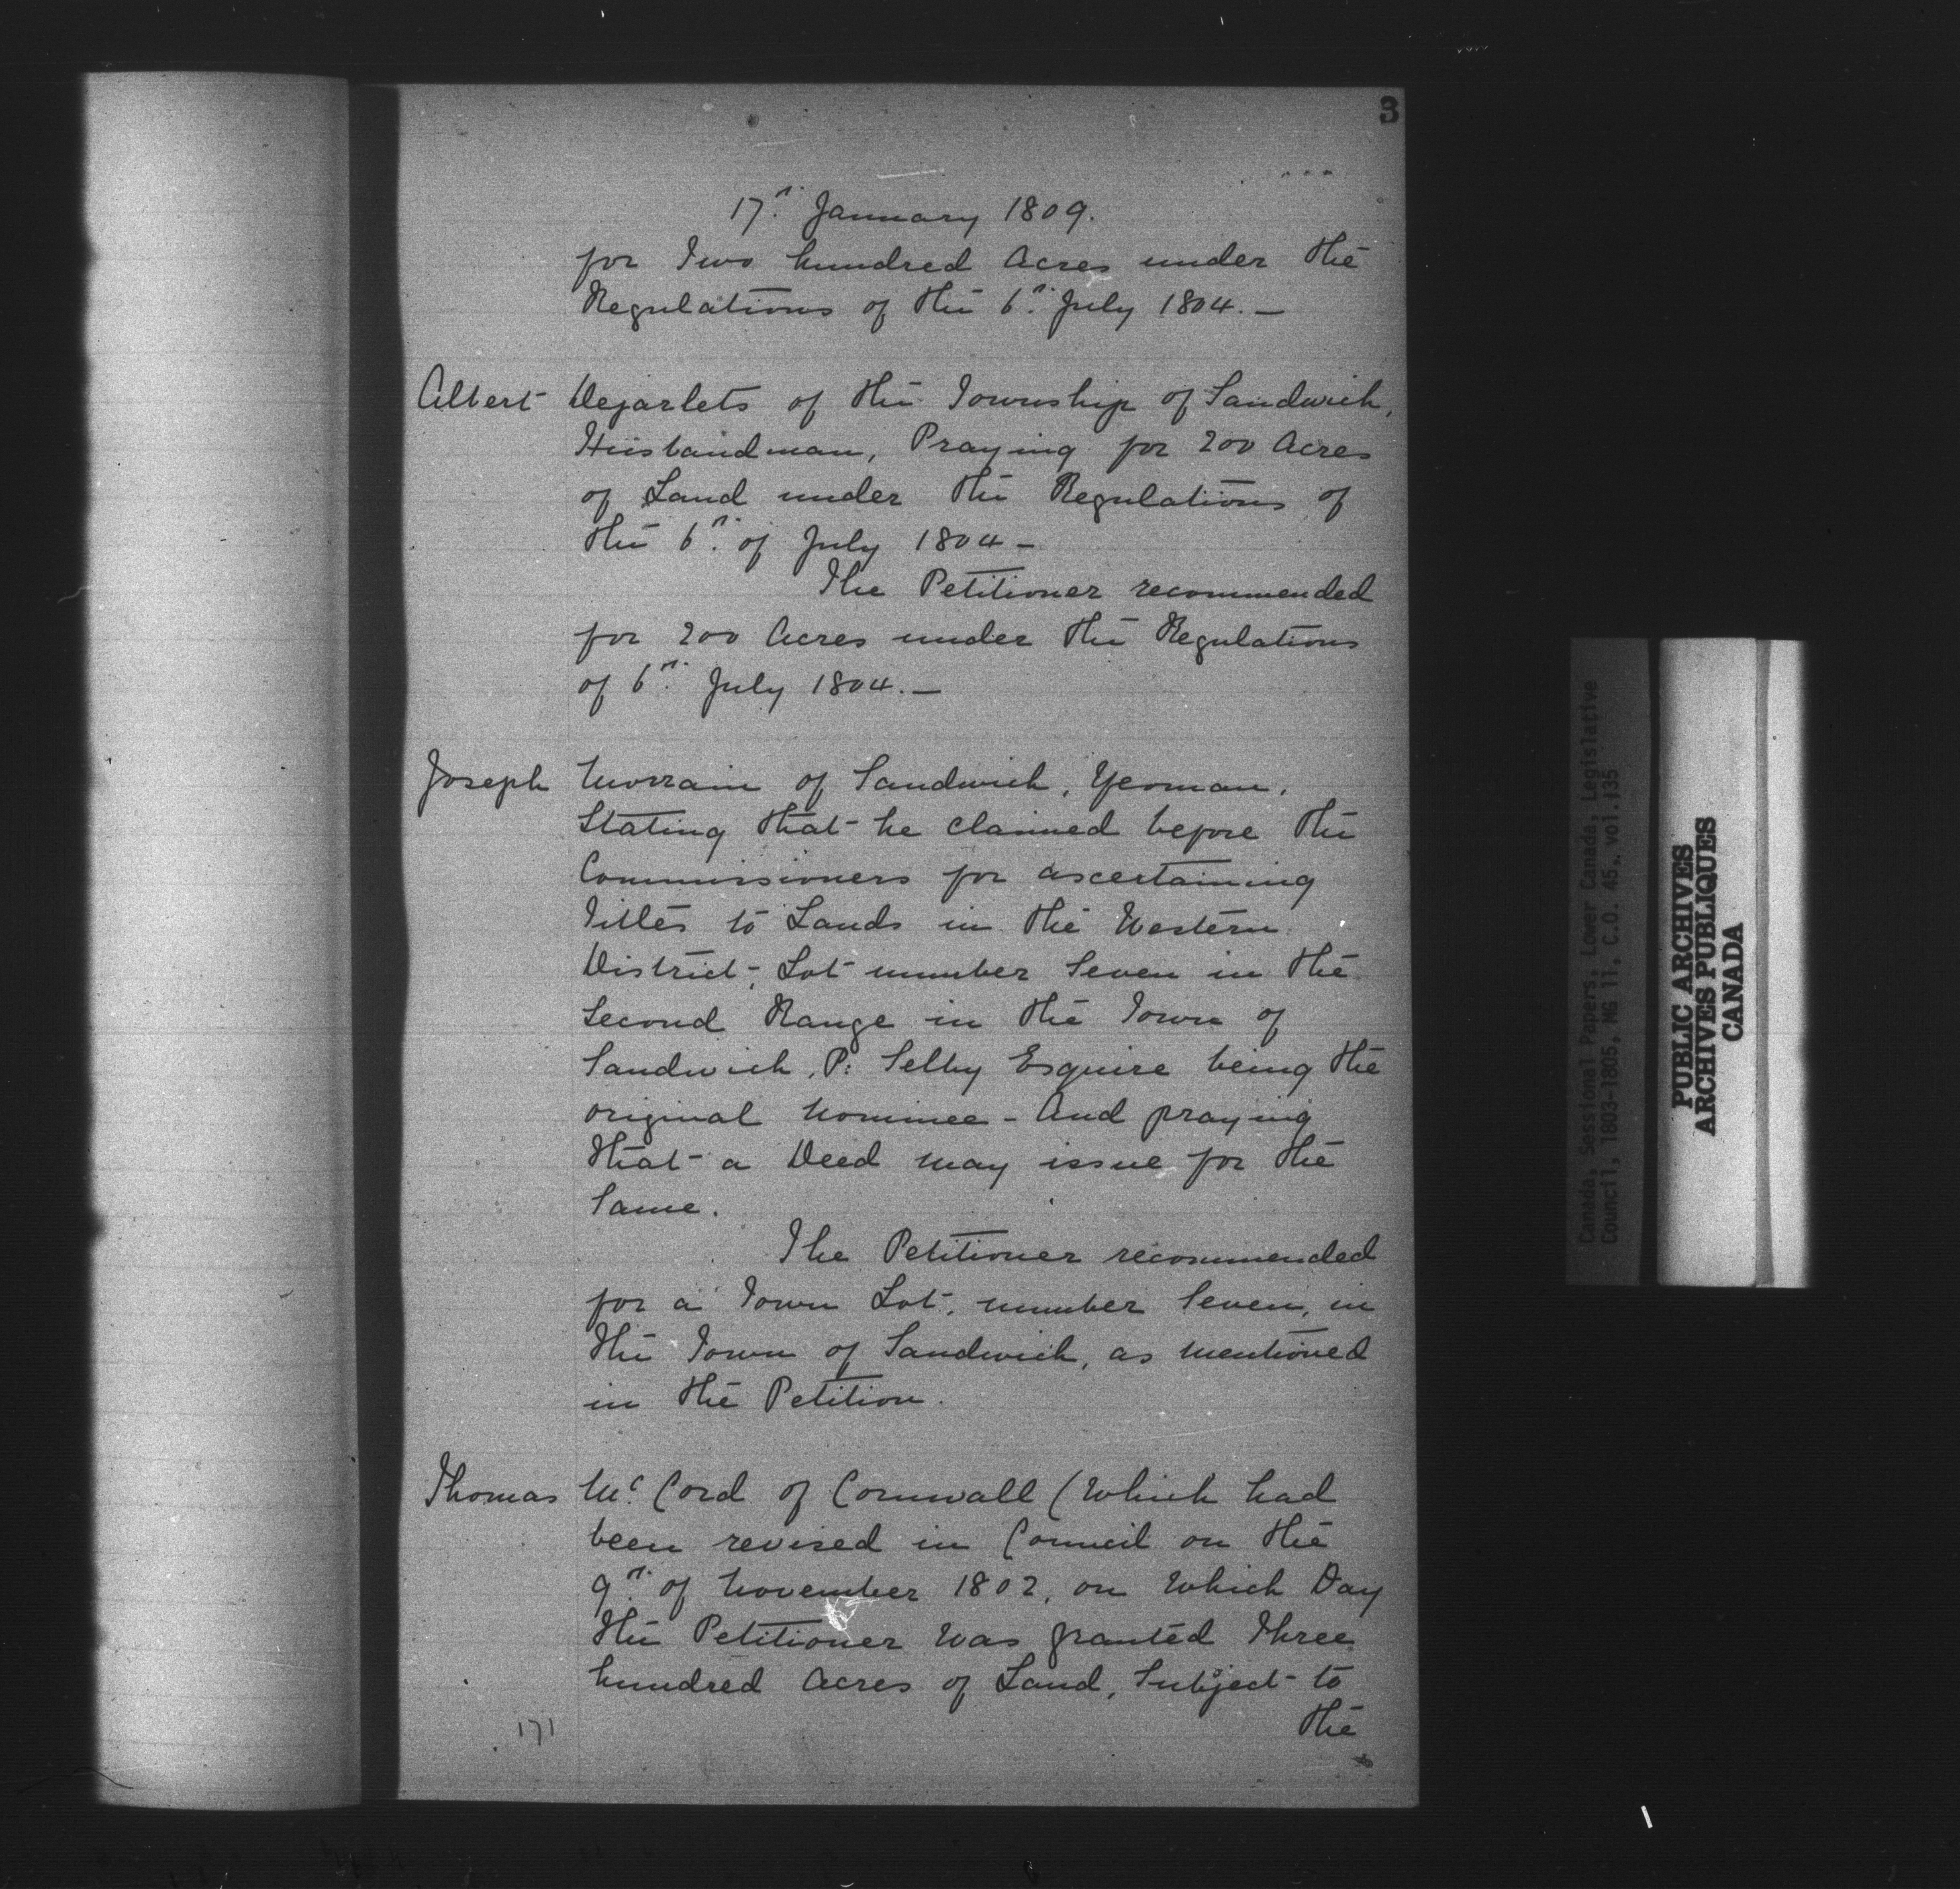 3
17th January 1809.
for Two hundred Acres under the
Regulations of the 6th July 1804. —
Albert Dejarlets of the Township of Sandwich,
Husbandman, Praying for 200 Acres
of Land under the Regulations of
the 6th of July 1804 —
The Petitioner recommended
for 200 Acres under the Regulations
of 6th July 1804. —
Joseph Morrain of Sandwich, Yeoman,
Stating that he claimed before the
Commissioners for ascertaining
Titles to Lands in the Western
District, Lot number Seven in the
Second Range in the Town of
Sandwich, P: Selby Esquire being the
original Nominee - And praying
that a Deed may issue for the
Same.
The Petitioner recommended
for a Town Lot, number Seven, in
the Town of Sandwich, as mentioned
in the Petition.
Thomas Mc Cord of Cornwall (Which had
been revised in Council on the
9th of November 1802, on Which Day
the Petitioner was granted Three
hundred Acres of Land, Subject to
the
171
Canada, Sessional Papers, Lower Canada, Legislative
Council, 1803-1805, MG 11, C.O. 45, vol.135
PUBLIC ARCHIVES
ARCHIVES PUBLIQUES
CANADA